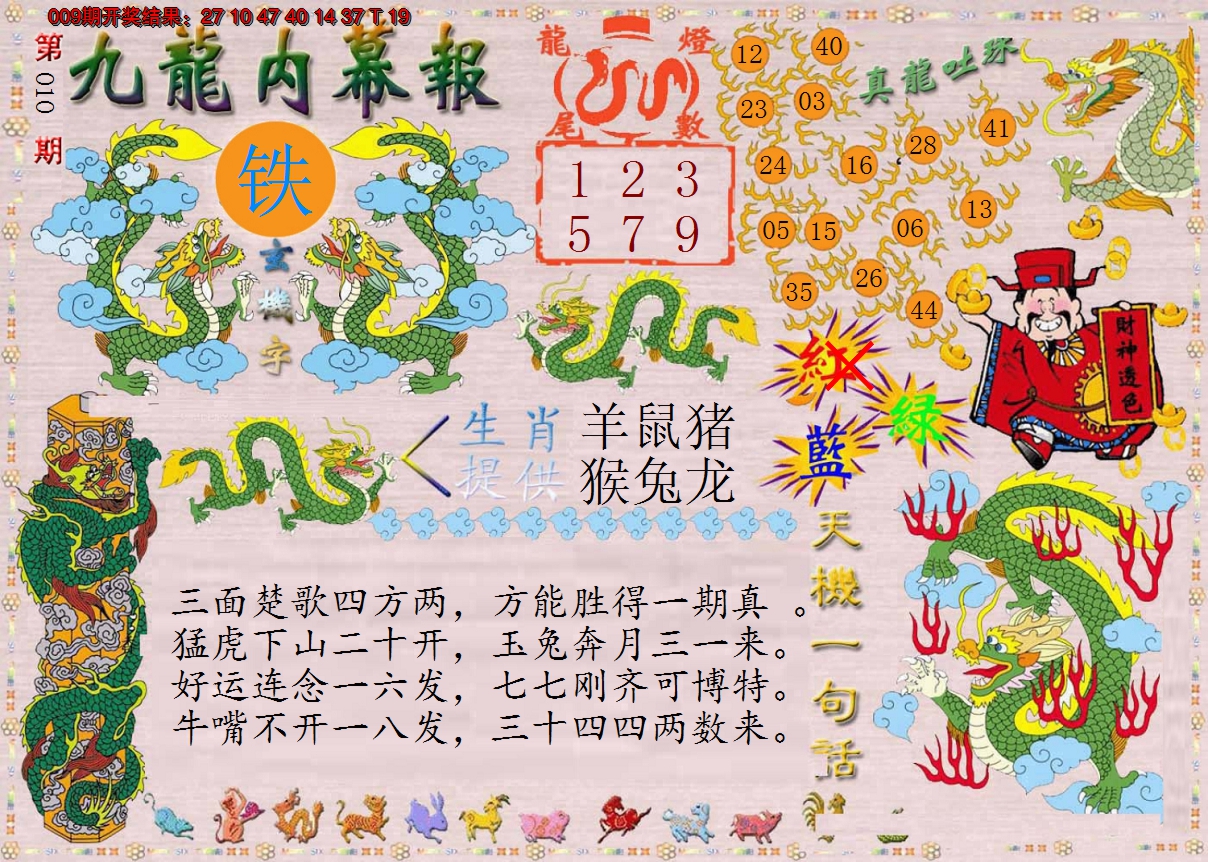 009期开奖结果：27 10 47 40 14 37 T 19
第010期
九龍内幕報
铁
玄機字
龍燈
尾數
1 2 3
5 7 9
真龍吐珠
12 40
23 03
24 16 28 41
05 15 06 13
35 26 44
紅
綠
藍
財神透色
生肖 羊鼠猪
提供 猴兔龙
天機一句話
三面楚歌四方两，方能胜得一期真 。
猛虎下山二十开，玉兔奔月三一来。
好运连念一六发，七七刚齐可博特。
牛嘴不开一八发，三十四四两数来。